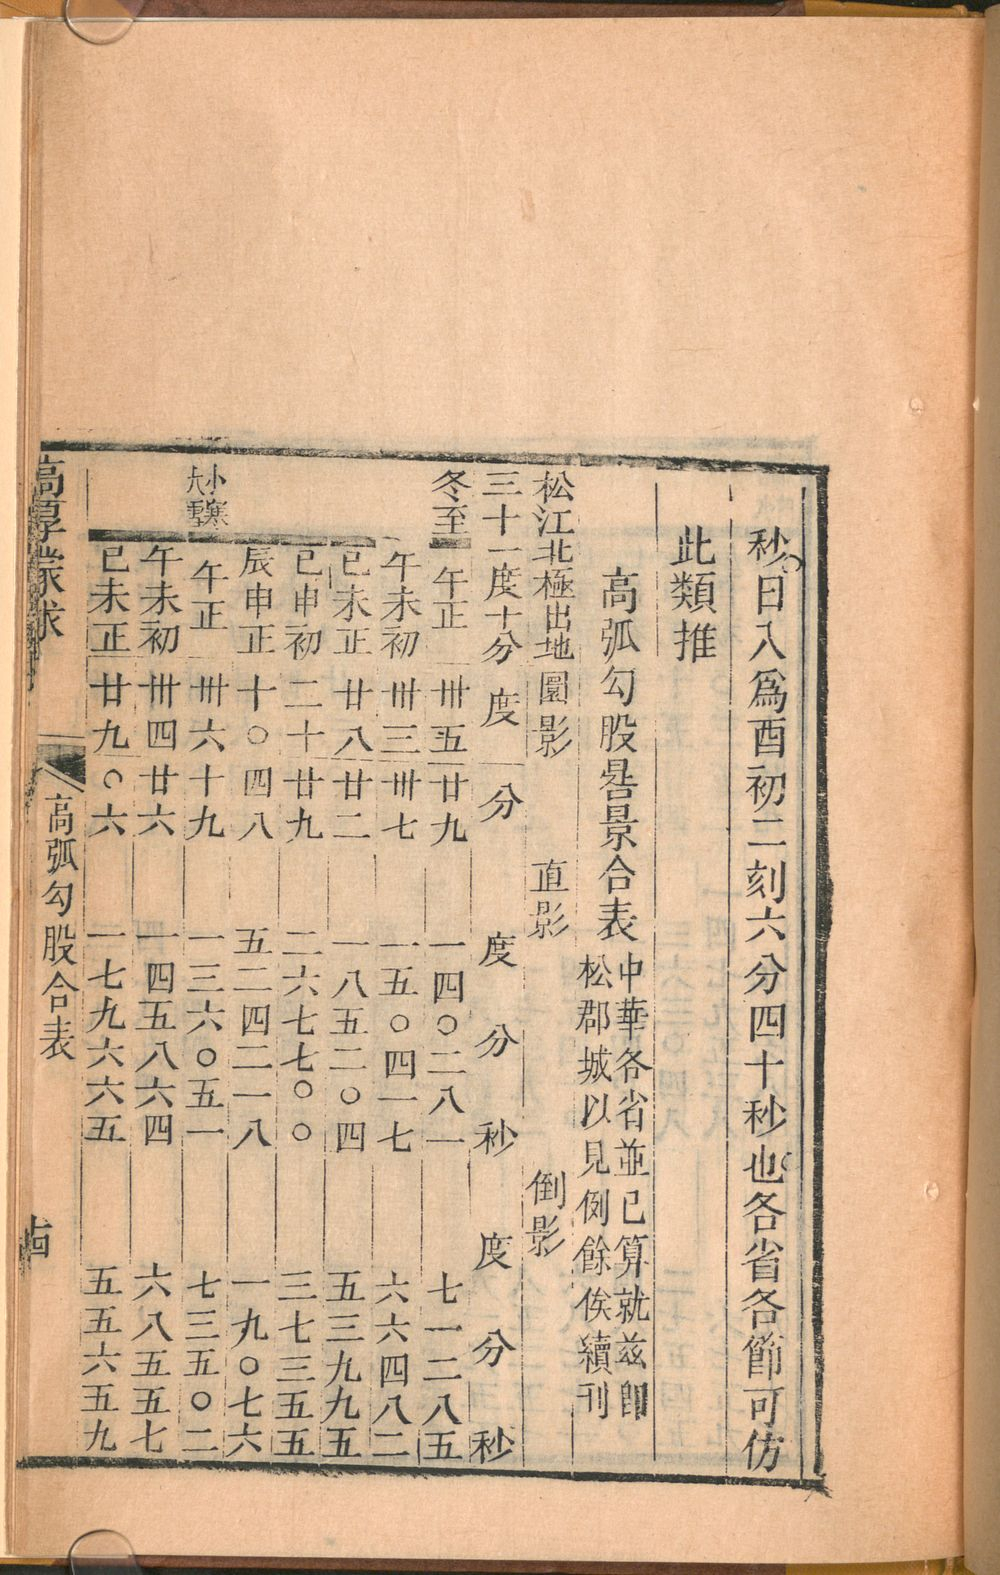 秒日入爲酉初二刻六分四十秒也各省各節可仿
此類推
高弧勾股晷景合表
中華各省並已算就兹卽
松郡城以見例餘俟續刊
松江北極出地圓影　直影　倒影
三十一度十分　度　分　度　分　秒　度　分　秒
冬至　午正　卅五　廿九　一四〇二八一　七一二八五
午未初　卅三　卅七　一五〇四一七　六六四八二
巳未正　廿八　廿二　一八五二〇四　五三九九五
巳申初　二十　廿九　二六七七〇〇　三七三五五
辰申正　十〇　四八　五二四二一八　一九〇七六
小寒　大雪　午正　卅六　十九　一三六〇五一　七三五〇二
午未初　卅四　廿六　一四五八六四　六八五五七
巳未正　廿九　〇六　一七九六六五　五五六五九
高厚蒙求　高弧勾股合表　十四